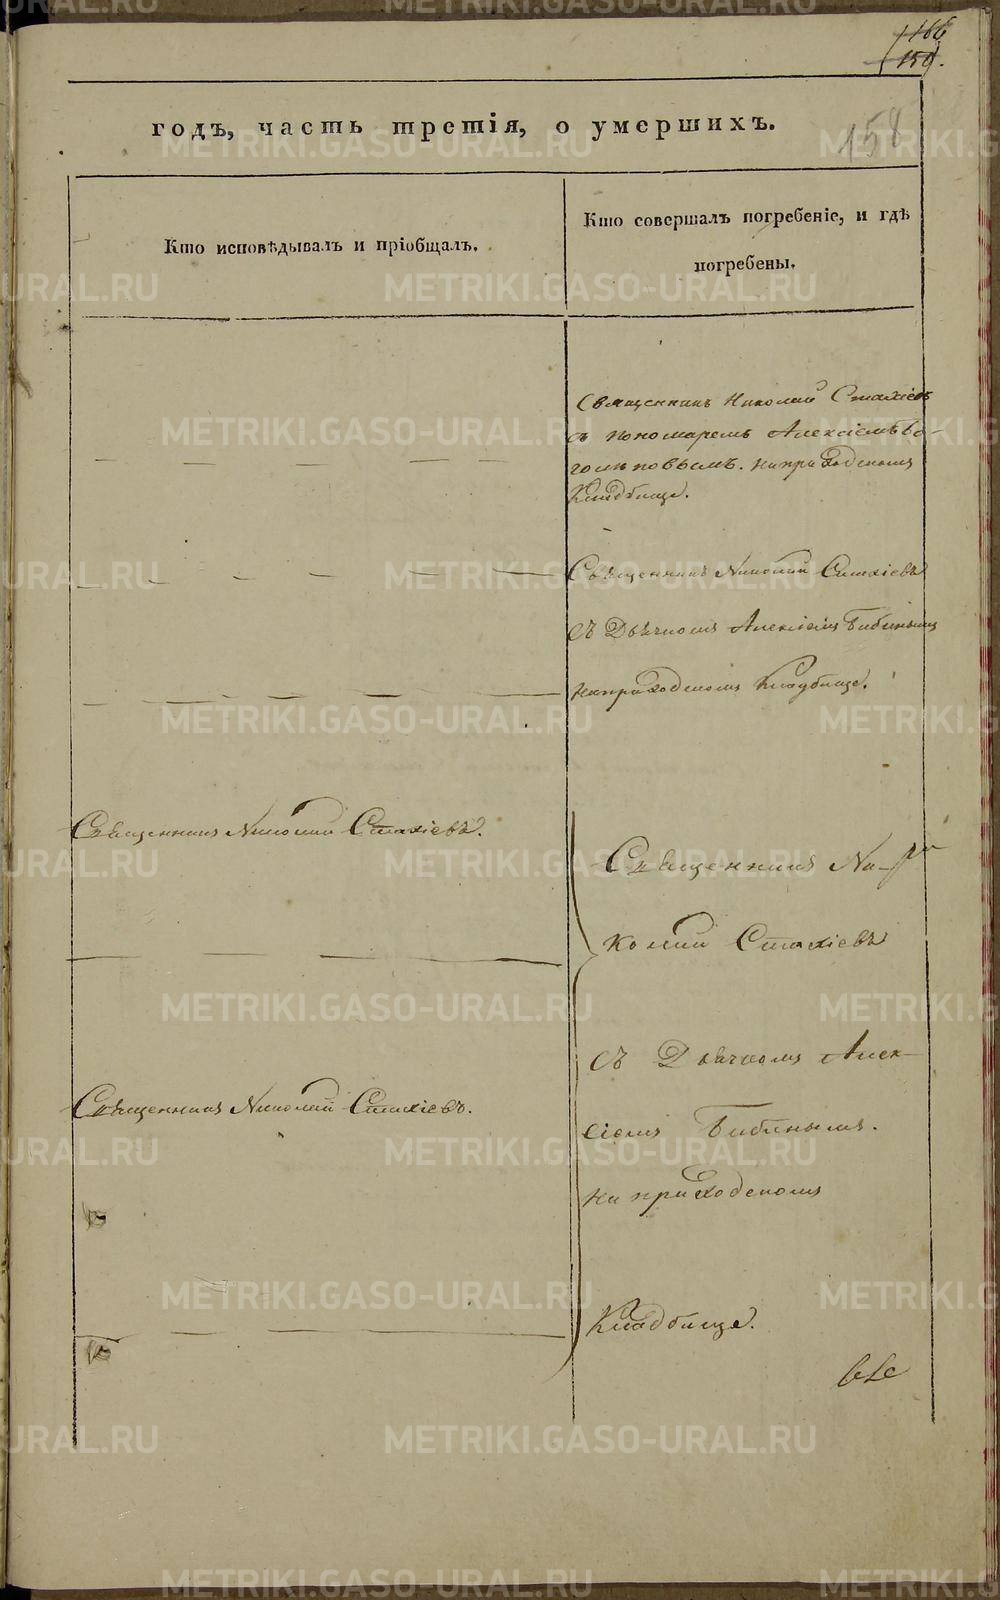 166
159.
158
годъ, часть третія, о умершихъ.
Кто исповѣдывалъ и пріобщалъ.
Кто совершалъ погребеніе, и гдѣ
погребены.
Священникъ Николай Стахіевъ
съ пономаремъ Алексіемъ Бо-
голеповымъ. на приходскомъ
Кладбище.
Священникъ Николай Стахіевъ
съ Дьячкомъ Алексіемъ Бибинымъ
на приходскомъ кладбище.
Священникъ Николай Стахіевъ.
Священникъ Ни-
колай Стахіевъ
съ Дьячкомъ Алек-
Священникъ Николай Стахіевъ.
сіемъ Бибинымъ.
на приходскомъ
Кладбище.
METRIKI.GASO-URAL.RU